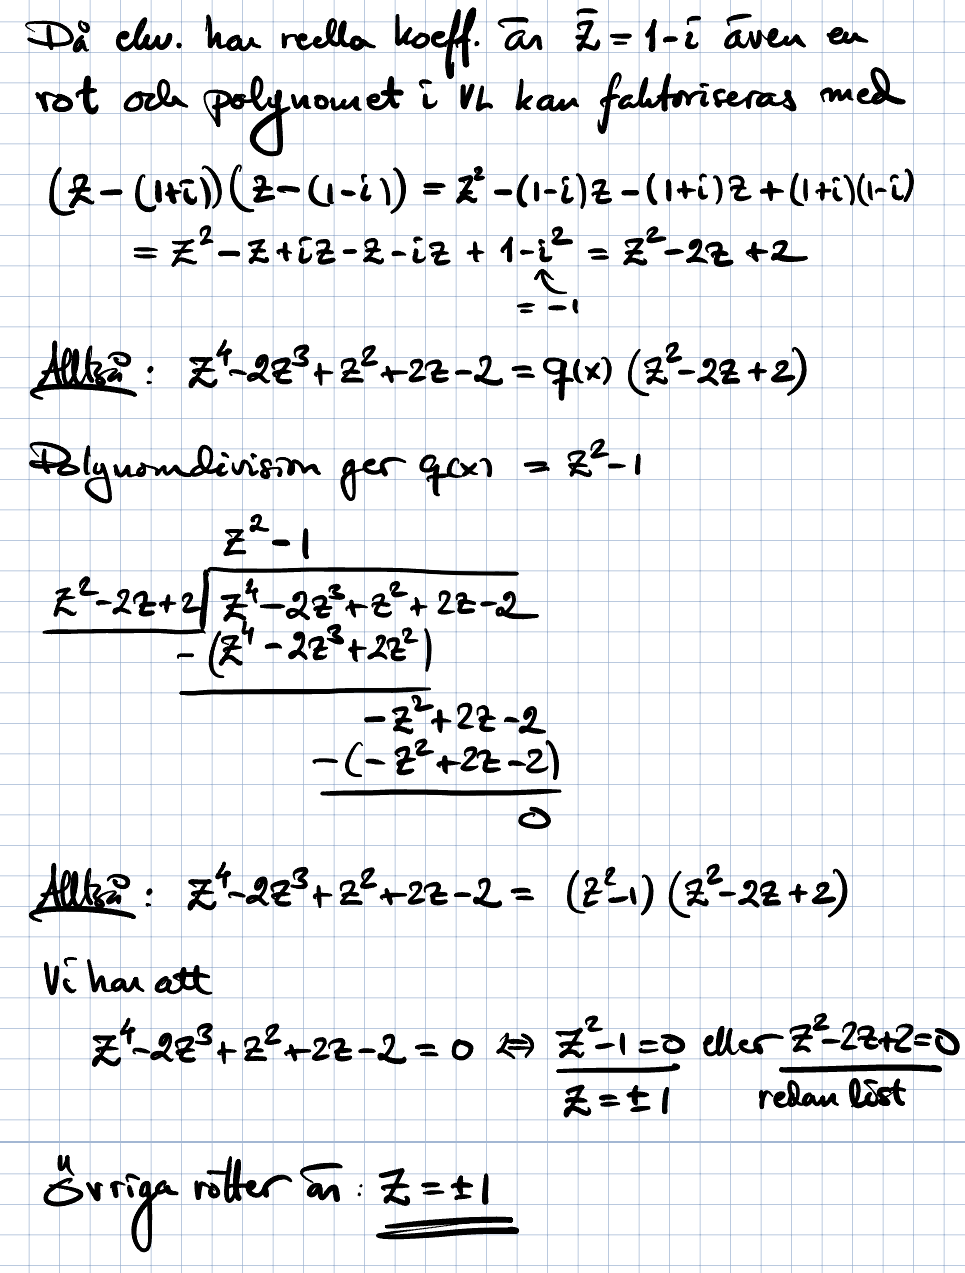 Då ekv. har reella koeff. är z̄ = 1-i även en
rot och polynomet i VL kan faktoriseras med
(z-(1+i))(z-(1-i)) = z²-(1-i)z-(1+i)z+(1+i)(1-i)
= z²-z+iz-z-iz+1-i² = z²-2z+2
= -1
Alltså: z⁴-2z³+z²+2z-2 = q(x)(z²-2z+2)
Polynomdivision ger q(x) = z²-1
z²-1
z²-2z+2 z⁴-2z³+z²+2z-2
-(z⁴-2z³+2z²)
-z²+2z-2
-(-z²+2z-2)
0
Alltså: z⁴-2z³+z²+2z-2 = (z²-1)(z²-2z+2)
Vi har att
z⁴-2z³+z²+2z-2 = 0 ⇔ z²-1=0 eller z²-2z+2=0
z = ±1 redan löst
Övriga rötter är: z = ±1